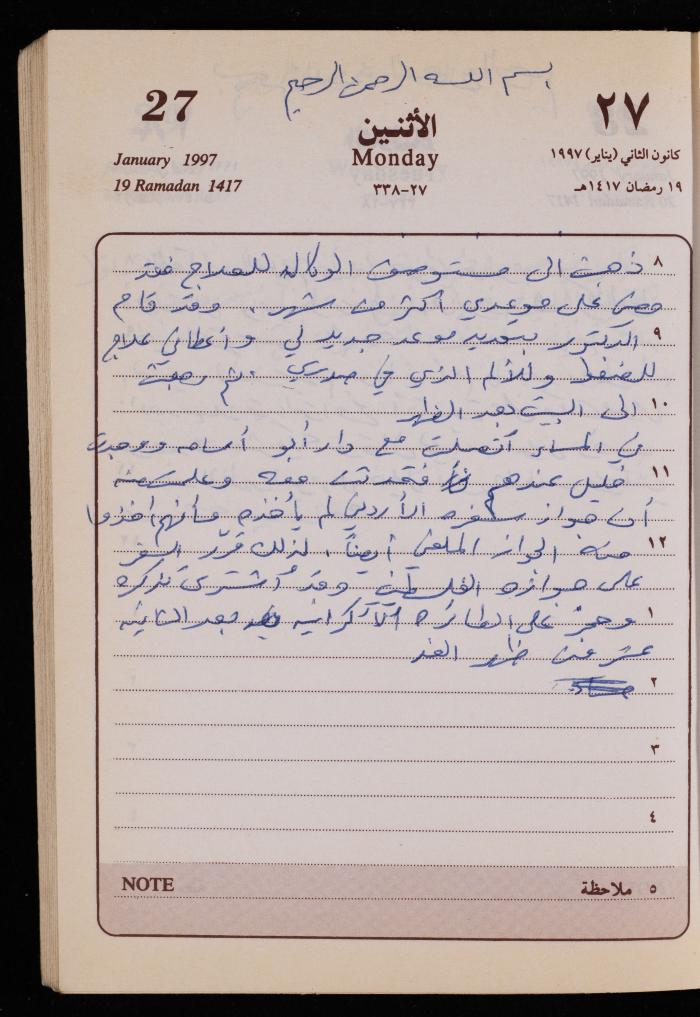 بسم الله الرحمن الرحيم
27
٢٧
الأثنين
Monday
٢٧-٣٣٨
January 1997
19 Ramadan 1417
كانون الثاني (يناير) ١٩٩٧
١٩ رمضان ١٤١٧هـ
٨ ذهبت الى مستوصف الوكاله للعلاج فقد
مضى على موعدي اكثر من شهر . وقد قام
٩ الدكتور بتجديد موعد جديد لي واعطاني علاج
للضغط وللألم الذي في صدري . ثم رجعت
١٠ الى البيت بعد الظهر
في المساء أتصلت مع دار أبو أسامه ووجدت
١١ خليل عندهم فتحدثت معه وعلمت منه
أن جواز سفره الأردني لم يأخذه وأنهم أخذوا
١٢ منه الجواز الملغي أيضاً . لذلك قرّر السفر
على جوازه الفلسطيني وقد أشترى تذكره
١ وحجز على الطائره الأكرانيه بعد الثانيه
عشر من ظهر الغد
٢
٣
٤
٥ ملاحظة
NOTE